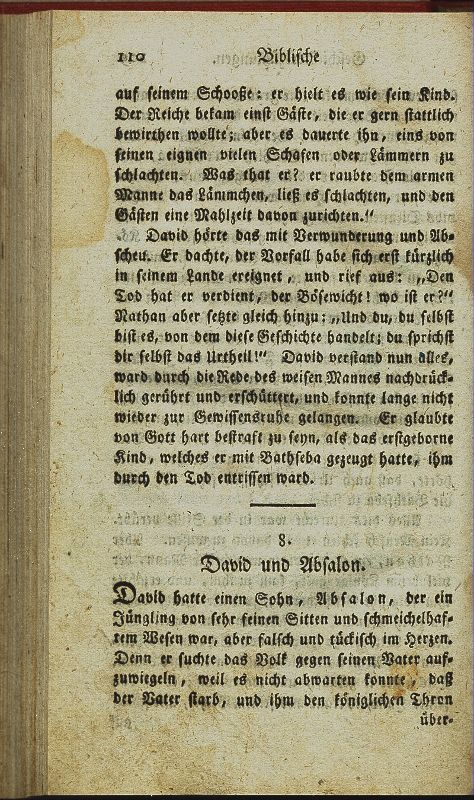 110 Biblische
auf seinem Schooße: er hielt es wie sein Kind.
Der Reiche bekam einst Gäste, die er gern stattlich
bewirthen wollte; aber es dauerte ihn, eins von
seinen eignen vielen Schafen oder Lämmern zu
schlachten. Was that er? er raubte dem armen
Manne das Lämmchen, ließ es schlachten, und den
Gästen eine Mahlzeit davon zurichten.“
David hörte das mit Verwunderung und Ab-
scheu. Er dachte, der Vorfall habe sich erst kürzlich
in seinem Lande ereignet, und rief aus: „Den
Tod hat er verdient, der Bösewicht! wo ist er?“
Nathan aber setzte gleich hinzu: „Und du, du selbst
bist es, von dem diese Geschichte handelt; du sprichst
dir selbst das Urtheil!“ David verstand nun alles,
ward durch die Rede des weisen Mannes nachdrück-
lich gerührt und erschüttert, und konnte lange nicht
wieder zur Gewissensruhe gelangen. Er glaubte
von Gott hart bestraft zu seyn, als das erstgeborne
Kind, welches er mit Bathseba gezeugt hatte, ihm
durch den Tod entrissen ward.
8.
David und Absalon.
David hatte einen Sohn, Absalon, der ein
Jüngling von sehr feinen Sitten und schmeichelhaf-
tem Wesen war, aber falsch und tückisch im Herzen.
Denn er suchte das Volk gegen seinen Vater auf-
zuwiegeln, weil es nicht abwarten konnte, daß
der Vater starb, und ihm den königlichen Thron
über-